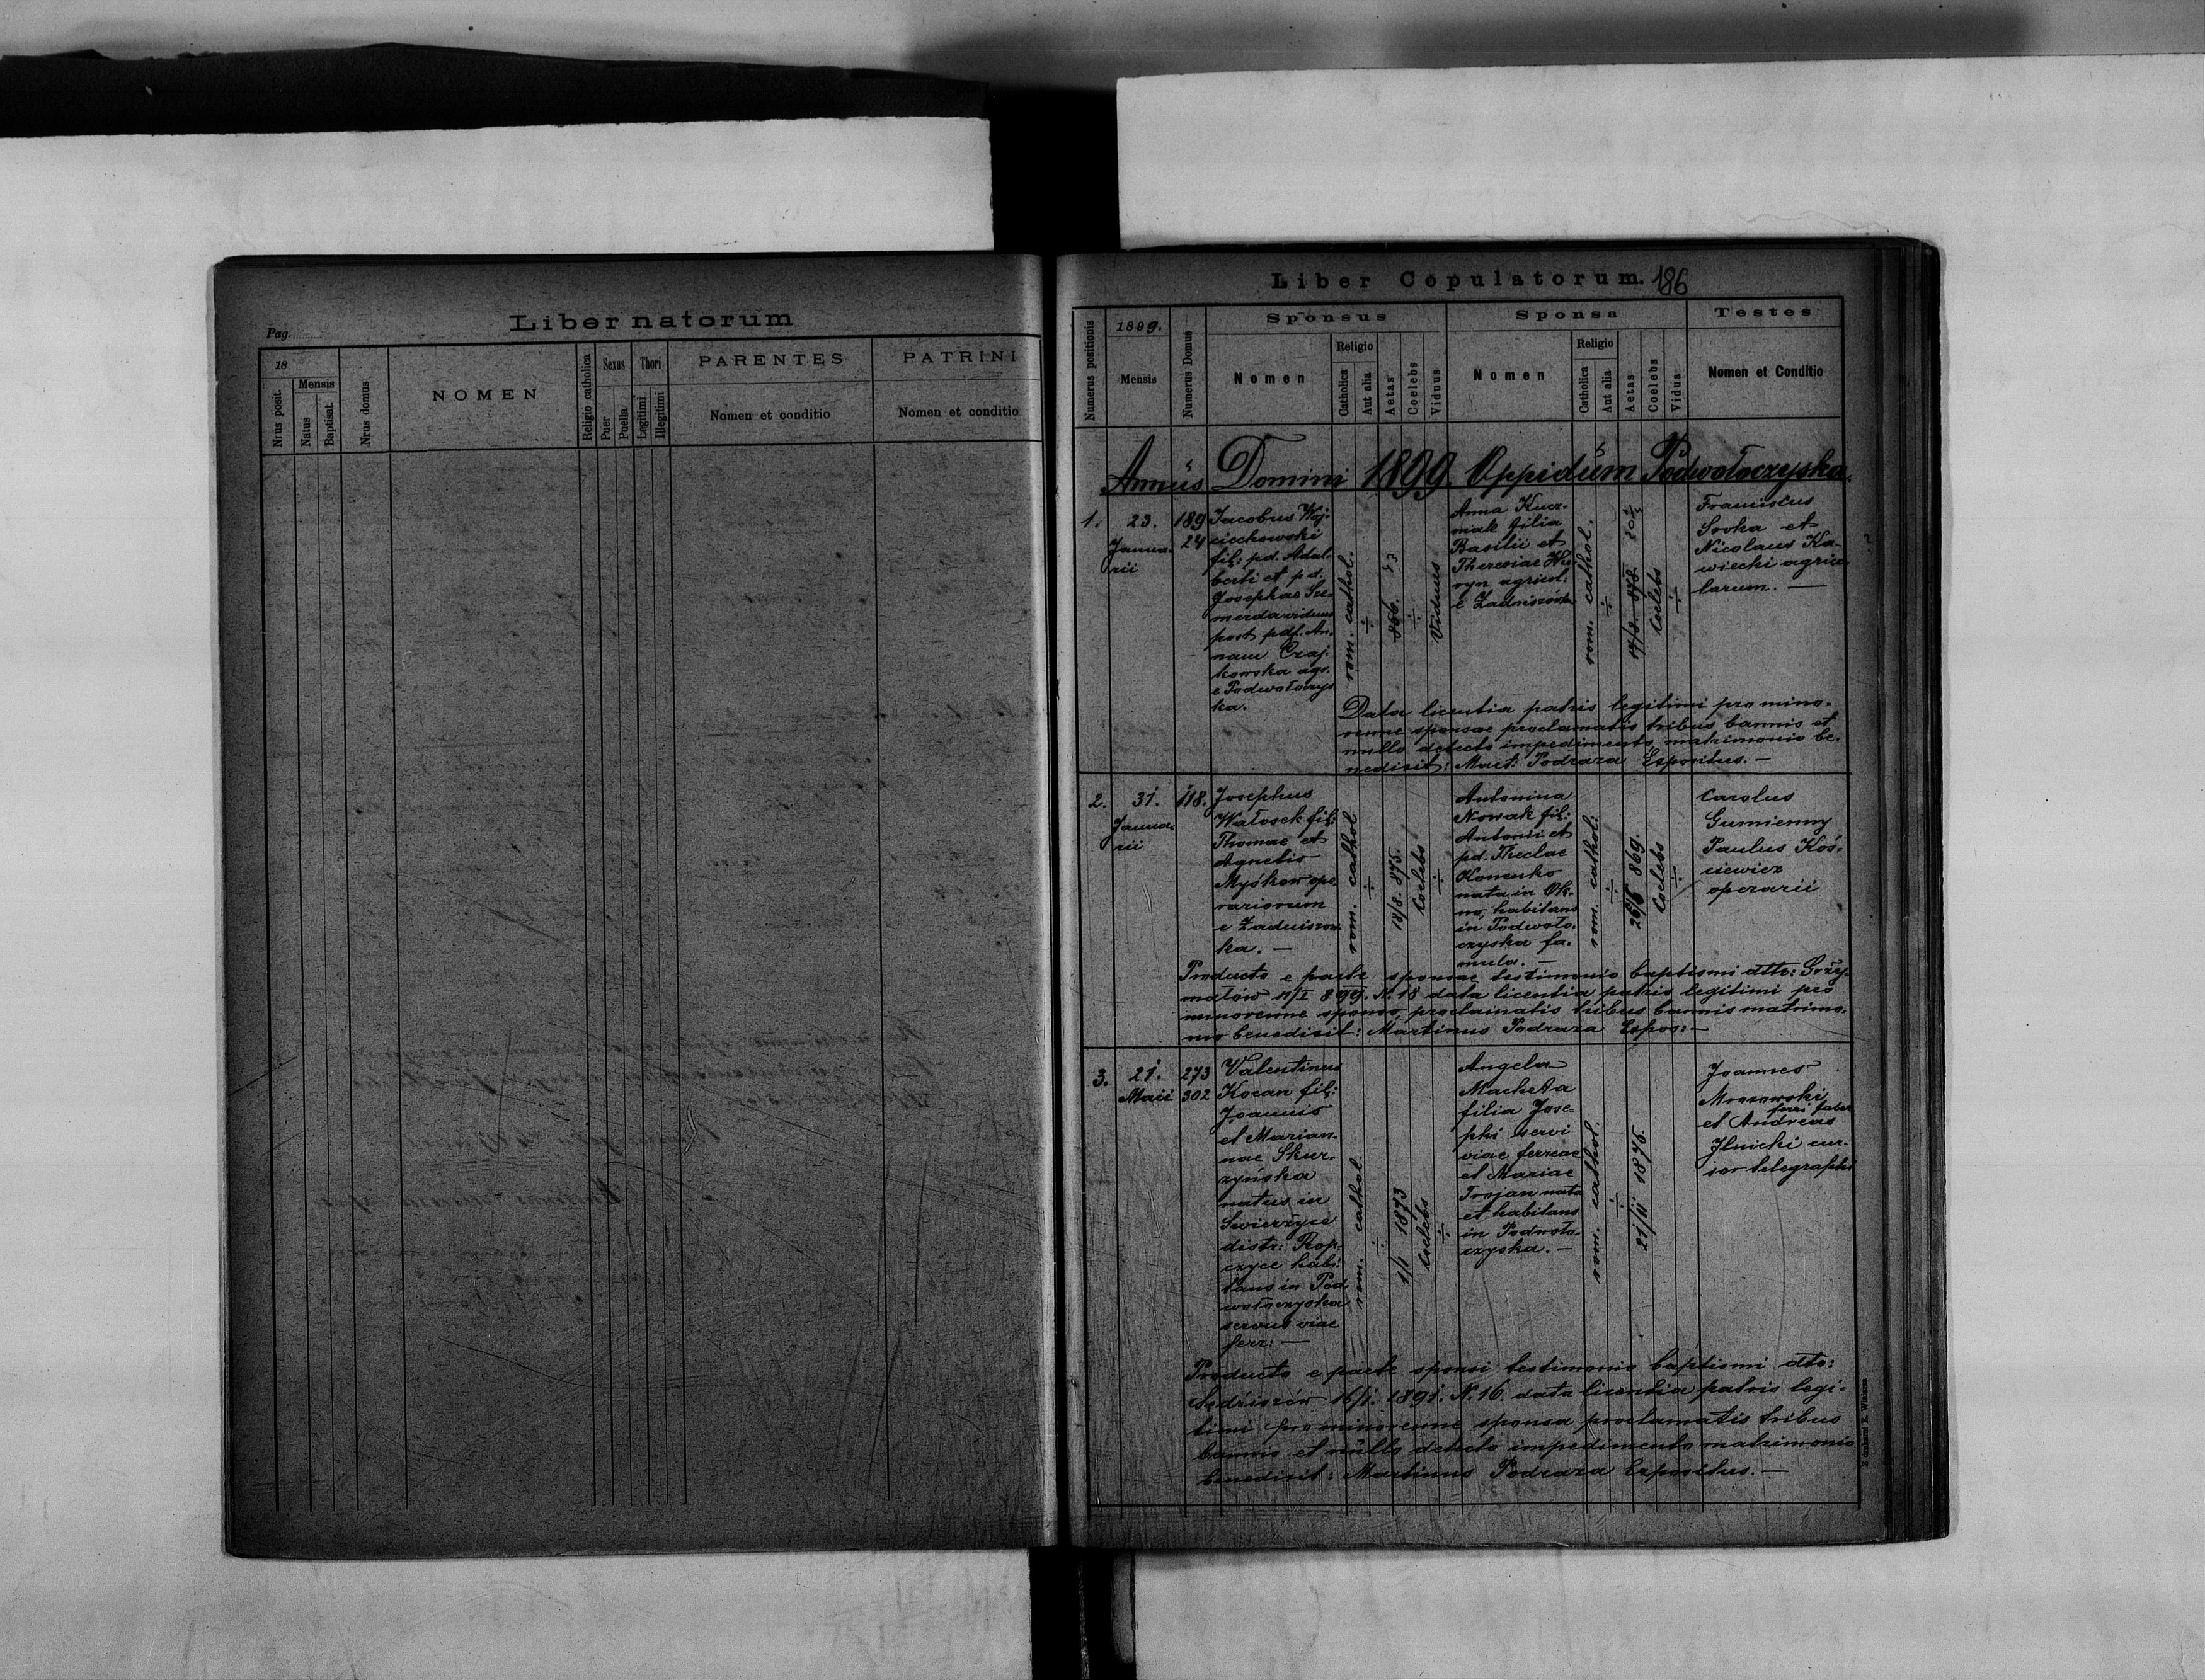 Pag.
Liber natorum
18
Nrus posit.
Mensis
Natus
Baptisat.
Nrus domus
NOMEN
Religio catholica
Sexus
Puer
Puella
Thori
Legitimi
Illegitimi
PARENTES
Nomen et conditio
PATRINI
Nomen et conditio
Liber Copulatorum. 186
Numerus positionis
1899.
Mensis
Numerus Domus
Sponsus
Nomen
Religio
Catholica
Aut alia
Aetas
Coelebs
Viduus
Sponsa
Nomen
Religio
Catholica
Aut alia
Aetas
Coelebs
Vidua
Testes
Nomen et Conditio
Annus Domini 1899. Oppidum Podwołoczyska.
1.
23.
Janua-
rii
189
24
Jacobus Woj-
ciechowski
fil: pd. Adal-
berti et pd.
Josephae Sze-
merda viduus
post pdf. An-
nam Czaj-
kowska agr.
e Podwołoczys
ka.
rom. cathol.
÷
866.
÷
Viduus
Anna Kucz-
niak filia
Basilii et
Theresiae
agricol:
e Zadniszówka
rom. cathol.
÷
17/8. 878.
Coelebs
÷
Franciscus
Sroka et
Nicolaus Ka-
wiecki agrico-
larum. —
Data licentia patris legitimi pro mino-
renne sponsae proclamatis tribus bannis et
nullo detecto impedimento matrimonio be-
nedixit: Mart: Podraza Expositus. —
2.
31.
Janua-
rii
118.
Josephus
Wałosek fil:
Thomae et
Agnetis
Myśkow ope
rariorum
e Zadniszow-
ka. —
rom. cathol
÷
18/8. 875.
Coelebs
÷
Antonina
Nowak fil:
Antonii et
pd. Theclae
Klomenko
nata in Ok-
no, habitans
in Podwoło-
czyska fa-
mula. —
rom. cathol.
÷
26/8 869.
Coelebs
÷
Carolus
Gumienny
Paulus Koś-
ciewicz
operarii
Producto e parte sponsae testimonio baptismi dtto: Grzy-
małów 11/I 899. N. 18 data licentia patris legitimi pro
minorenne sponso, proclamatis tribus bannis matrimo-
nio benedixit: Martinus Podraza Expos: —
3.
21.
Maii
273
302
Valentinus
Kozan fil:
Joannis
et Marian-
nae Skur-
zyńska
natus in
Swierżyce
distr: Rop-
czyce habi-
tans in Pod-
wołoczyska
servus viae
ferr: —
rom. cathol.
÷
1/1 1873
Coelebs
÷
Angela
Macheta
filia Jose-
phi servi
viae ferreae
et Mariae
Trojan nata
et habitans
in Podwoło-
czyska. —
rom. cathol.
÷
21/11 1875.
Joannes
Mrozowski
ferri faber
et Andreas
Jlnicki cur-
sor telegraphi
Producto e parte sponsi testimonio baptismi dto:
Sędziszów 16/1. 1891. N. 16. data licentia patris legi-
timi pro minorenne sponsa proclamatis tribus
bannis et nullo detecto impedimento matrimonio
benedixit: Martinus Podraza Expositus. —
Z drukarni E. Winiarza